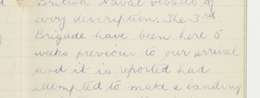 British Naval vessels of
every description. The 3rd
Brigade have been here 5
weeks previous to our arrival
and it is reported had
attempted to make a landing